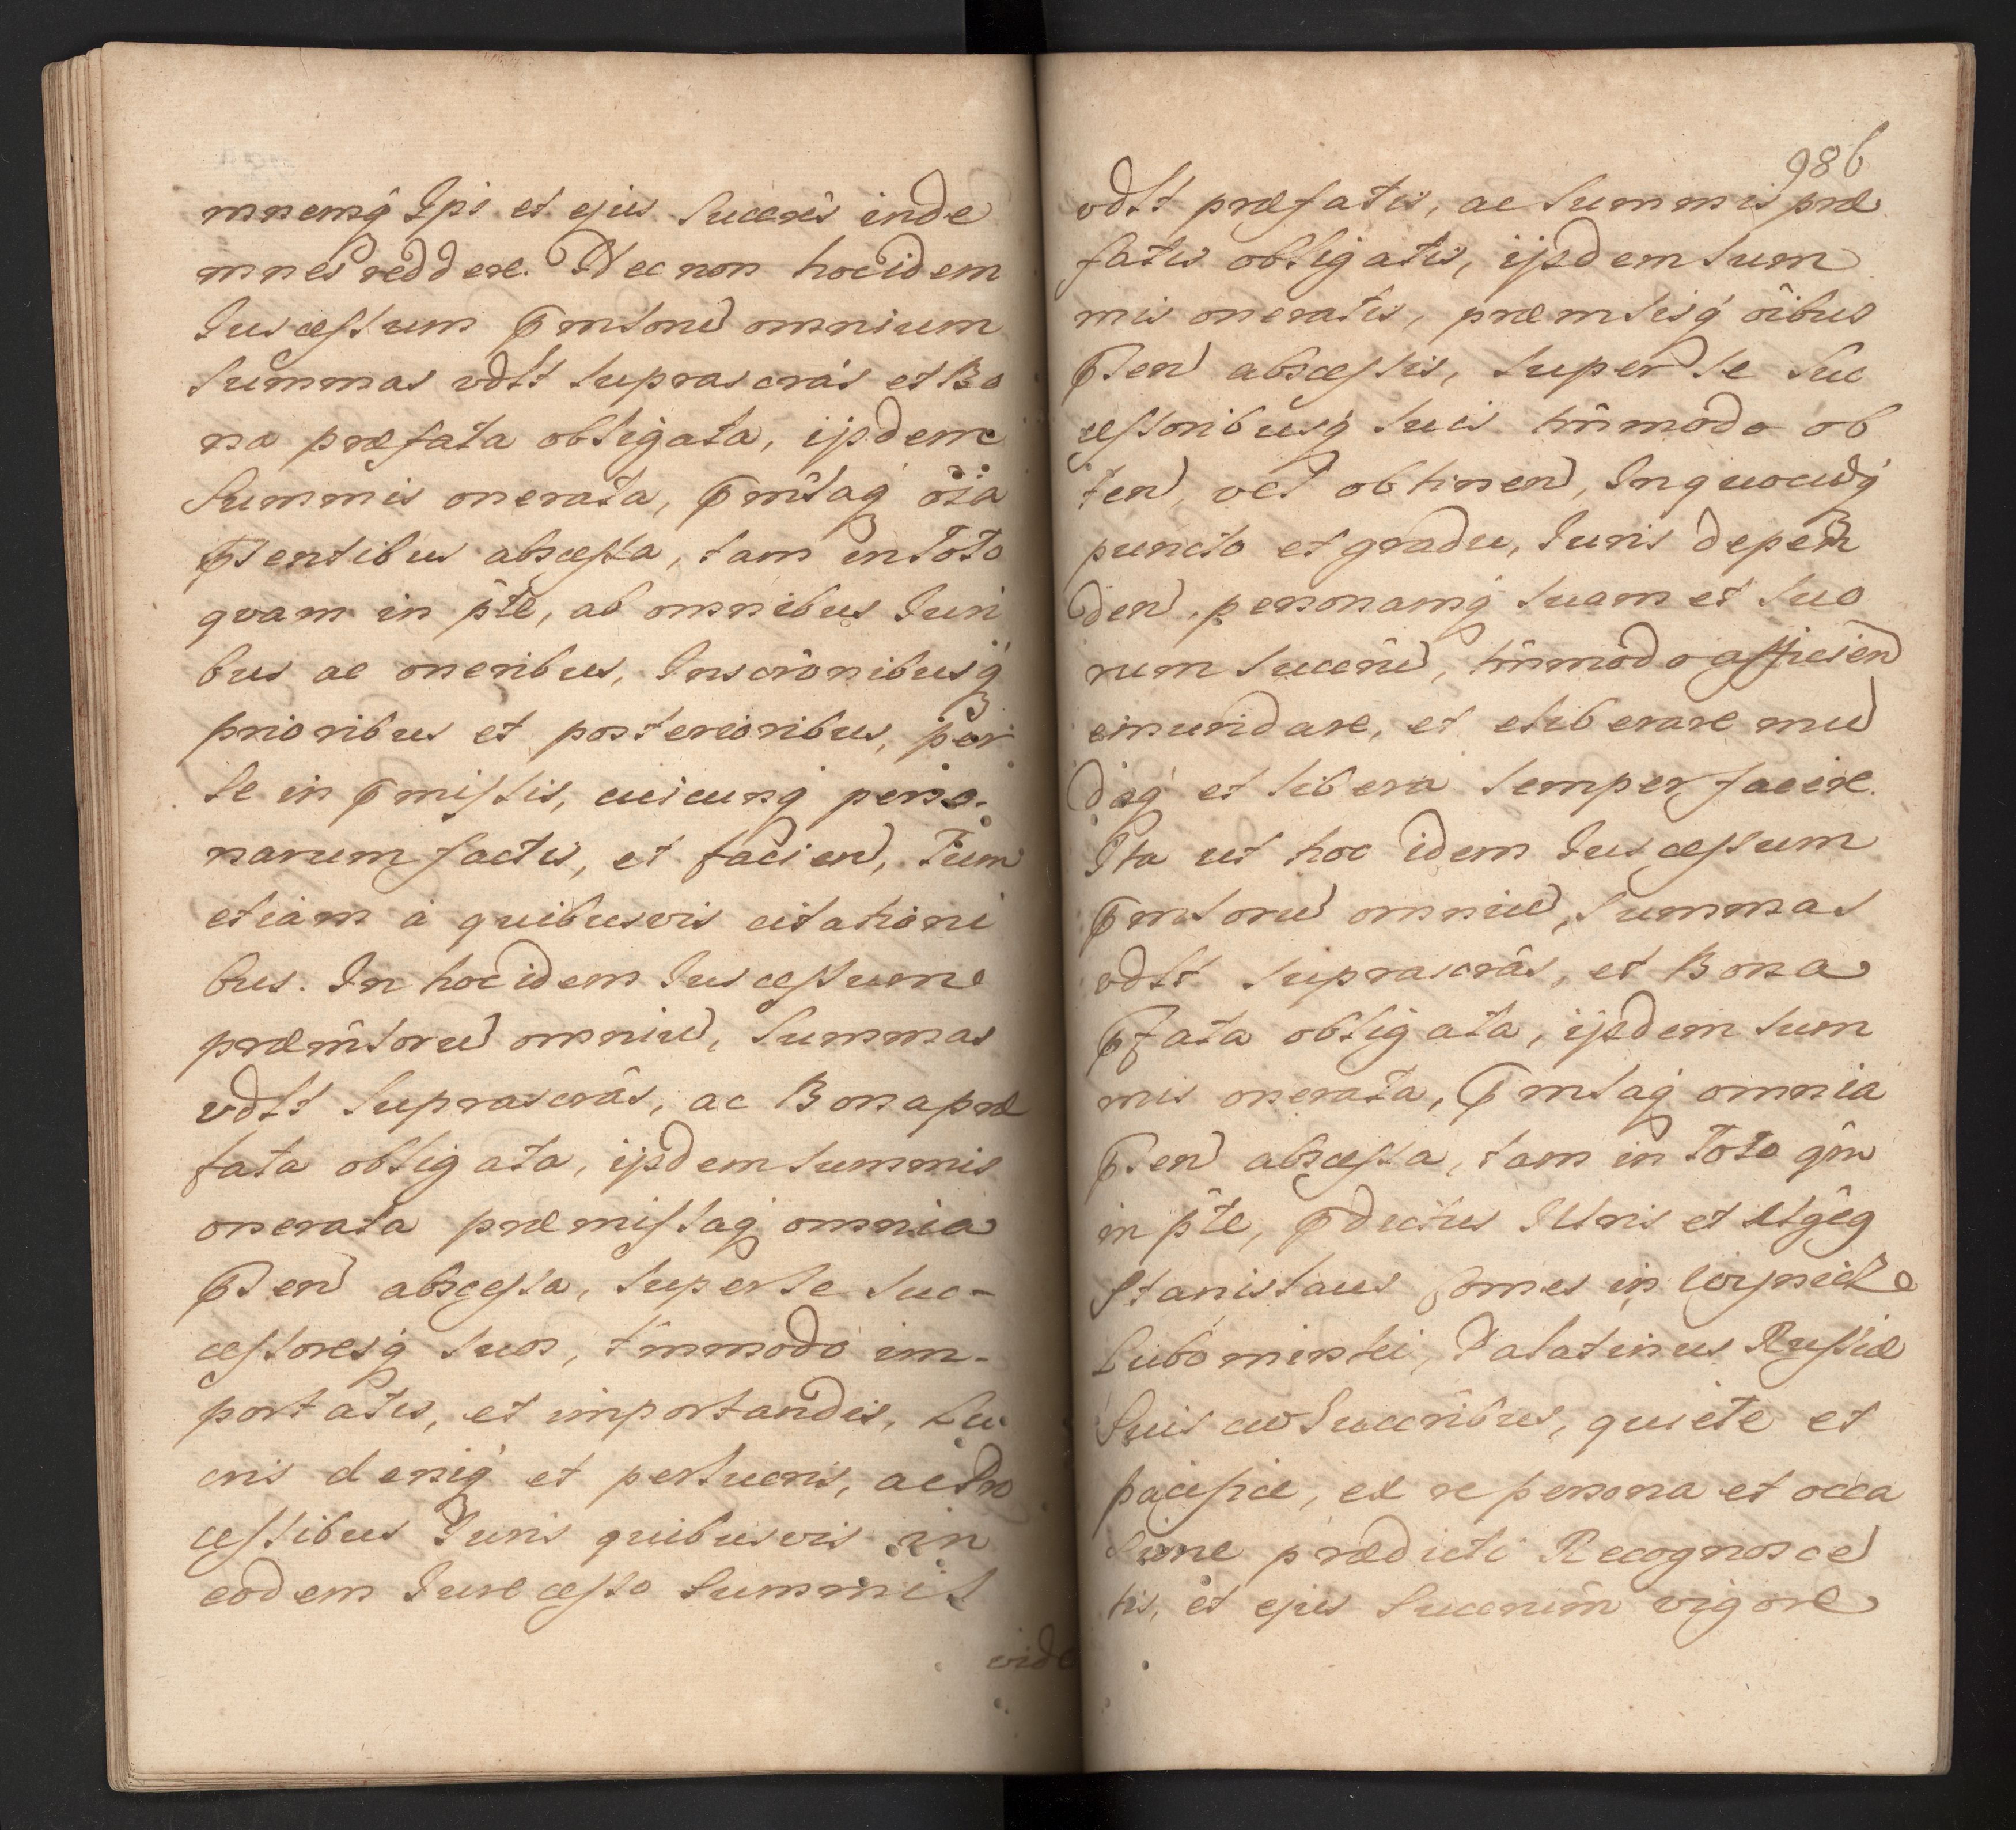 mnemq́ Ipś et ejus Succrês inde
mnes reddere. Nec non hoc idem
Jus cessum p̄mtorū omnium
Summas vdtt suprascrás et Bo
na præfata obligata, ijsdem
Summis onerata, p̄mtaq́ ōia
p̄sentibus abscessa, tam in Toto
qvam in p̂te, ab omnibus Juri
bus ac oneribus, Inscrõnibusq́
prioribus et posterioribus, per
se in p̄missis, cuicunq́ perso-
narum factis, et faciend, Tum
etiam à quibusvis citationi
bus. In hoc idem Jus cessum
præmtorū omniū, Summas
vdtt Suprascrâs, ac Bona præ
fata obligata, ijsdem Summis
onerata præmissaq́ omnia
p̄sen abscessa, super se Suc-
cessoresq́ suos, tm̂modo im-
portatis, et importandis, Lu
cris deniq́ et perlucris, ac Pro
cessibus Juris quibusvis in
eodem Jure cesso Summis
vide
986
vdtt præfatis, ac Summis præ
fatis obligatis, ijsdem Sum
mis oneratis, præmtisq́ ôibus
p̄sen abscessis, super se Suc
cessoribusq́ suis tm̂modo ob
ten, vel obtinen, In quocūq́
puncto et gradu, Juris depen
den, personamq́ suam et suo
rum Succrū, tm̂modo afficien
emundare, et eliberare mu
daq́ et libera semper facere.
Ita ut hoc idem Jus cessum
p̄mtorū omniū, Summas
vdtt suprascrâs, et Bona
p̄fata obligata, ijsdem Sum
mis onerata, p̄mtaq́ omnia
p̄sen abscessa, tam in Toto qm̂
in p̂te, p̄dictus Illris et Mgêq
Stanislaus Comes in Wiśnicz
Lubomirski, Palatinus Russiæ
Suis cū Succribus, quiete et
pacifice, ex re persona et occa
sione prædicti Recognosce
tis, et ejus Succrum̂ vigore